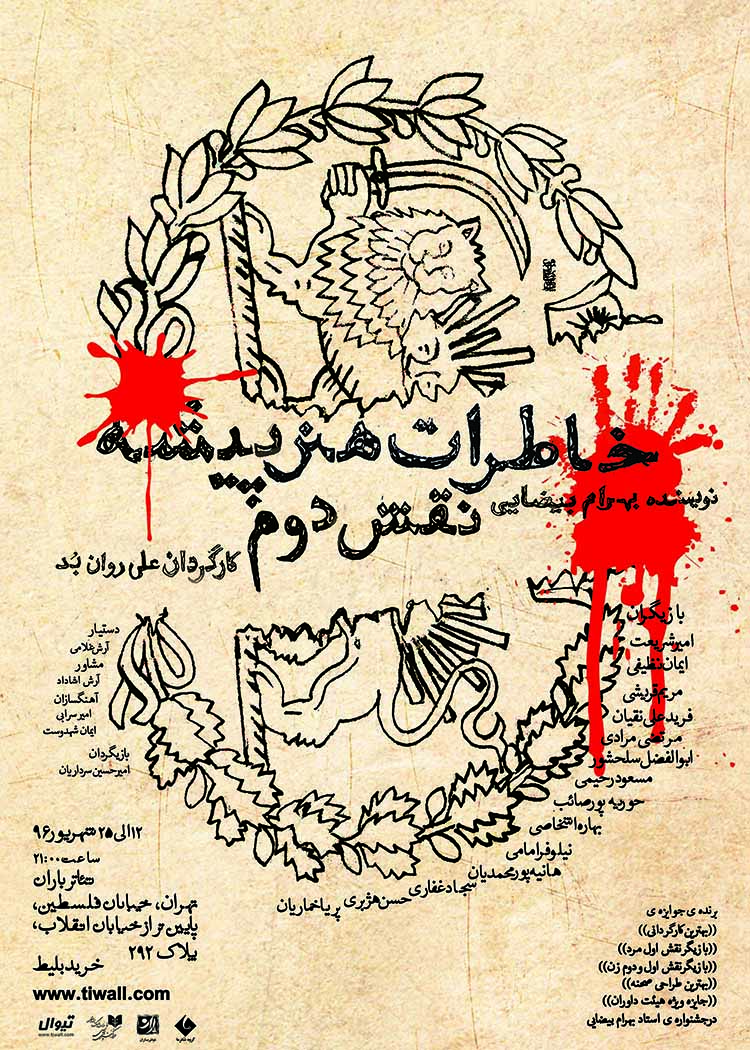 خاطرات هنرپیشه
نویسنده بهرام بیضایی
نقش دوم
کارگردان علی روان بُد
بازیگران
امیر شریعت
ایمان نظیفی
مریم قریشی
فرید علی نقیان
مرتضی مرادی
ابوالفضل سلحشور
مسعود رحیمی
حوریه پورصائب
بهاره اشخاصی
نیلوفر امامی
هانیه پورمحمدیان
سجاد غفاری
حسن هژبری
پریا خماریان
دستیار
آرش غلامی
مشاور
آرش اشاداد
آهنگسازان
امیر سرابی
ایمان شهدوست
بازیگردان
امیرحسین سرداریان
۱۲ الی ۲۵ شهریور ۹۶
ساعت ۲۱:۰۰
تئاتر باران
تهران، خیابان فلسطین،
پایین تر از خیابان انقلاب،
پلاک ۲۹۲
خرید بلیط
www.tiwall.com
تیوال
www.tiwall.com
برنده ی جوایزه ی
((بهترین کارگردانی))
((بازیگر نقش اول مرد))
((بازیگر نقش اول و دوم زن))
((بهترین طراحی صحنه))
((جایزه ویژه هیئت داوران))
در جشنواره ی استاد بهرام بیضایی